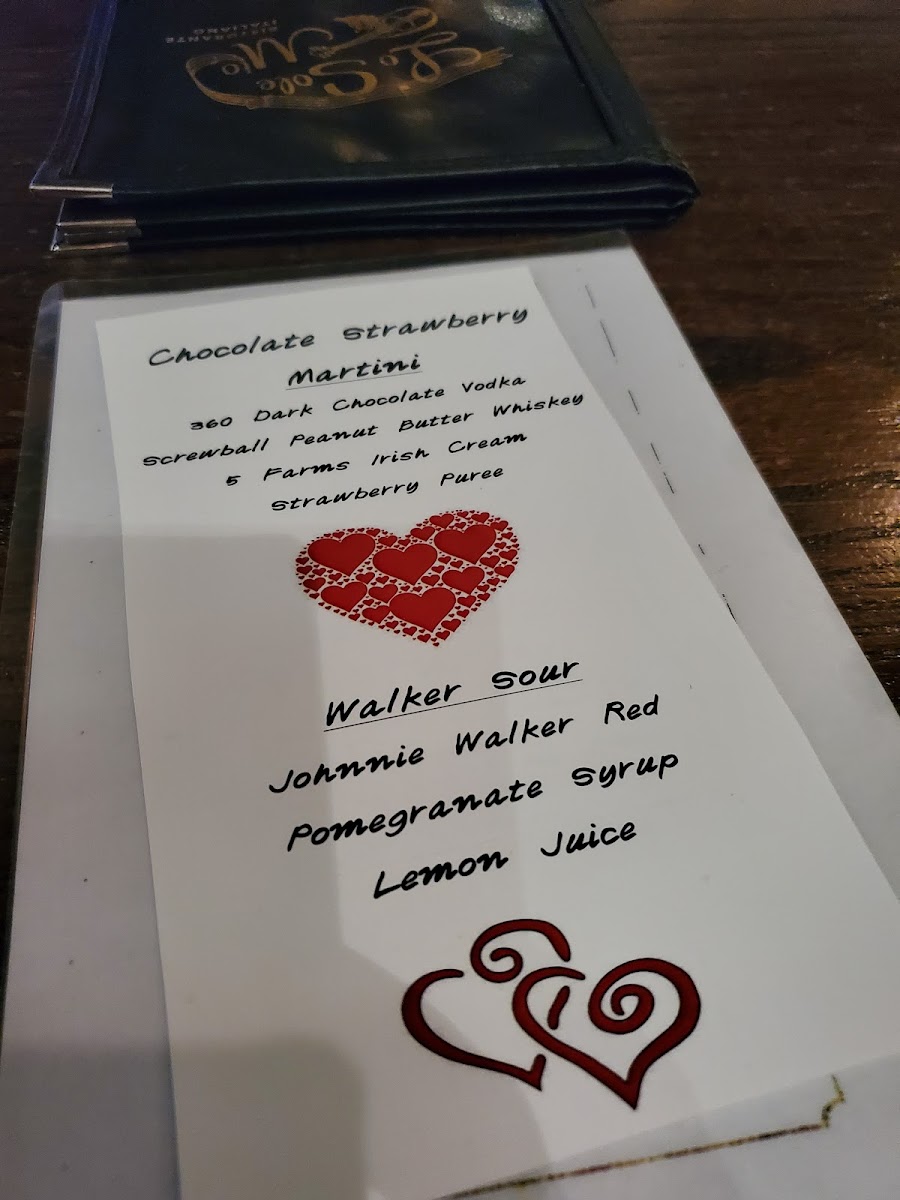 Lo Sole Mio
RISTORANTE
ITALIANO
Chocolate Strawberry
Martini
360 Dark Chocolate Vodka
Screwball Peanut Butter Whiskey
5 Farms Irish Cream
Strawberry Puree
Walker Sour
Johnnie Walker Red
Pomegranate Syrup
Lemon Juice